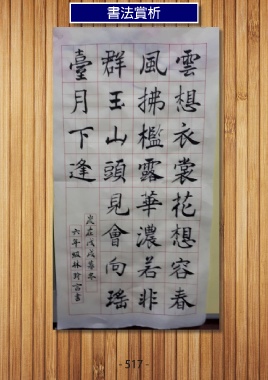 書法賞析
雲想衣裳花想容春
風拂檻露華濃若非
群玉山頭見會向瑤
臺月下逢
戊戌
六年級林書
- 517 -